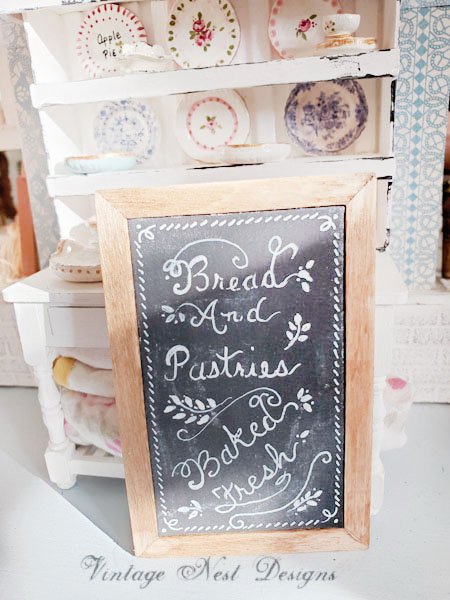 Apple
Pie
Bread
And
Pastries
Baked
Fresh
Vintage Nest Designs